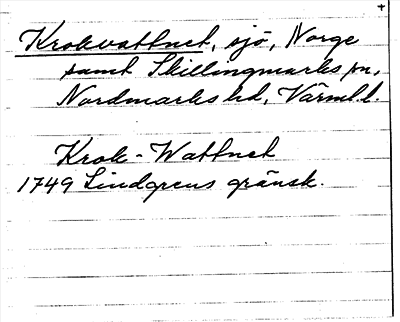 Krokvattnet, sjö, Norge
samt Skillingmarks sn,
Nordmarks hd, Värml. l.
Krok-Wattnet
1749 Lindgrens gränsk.